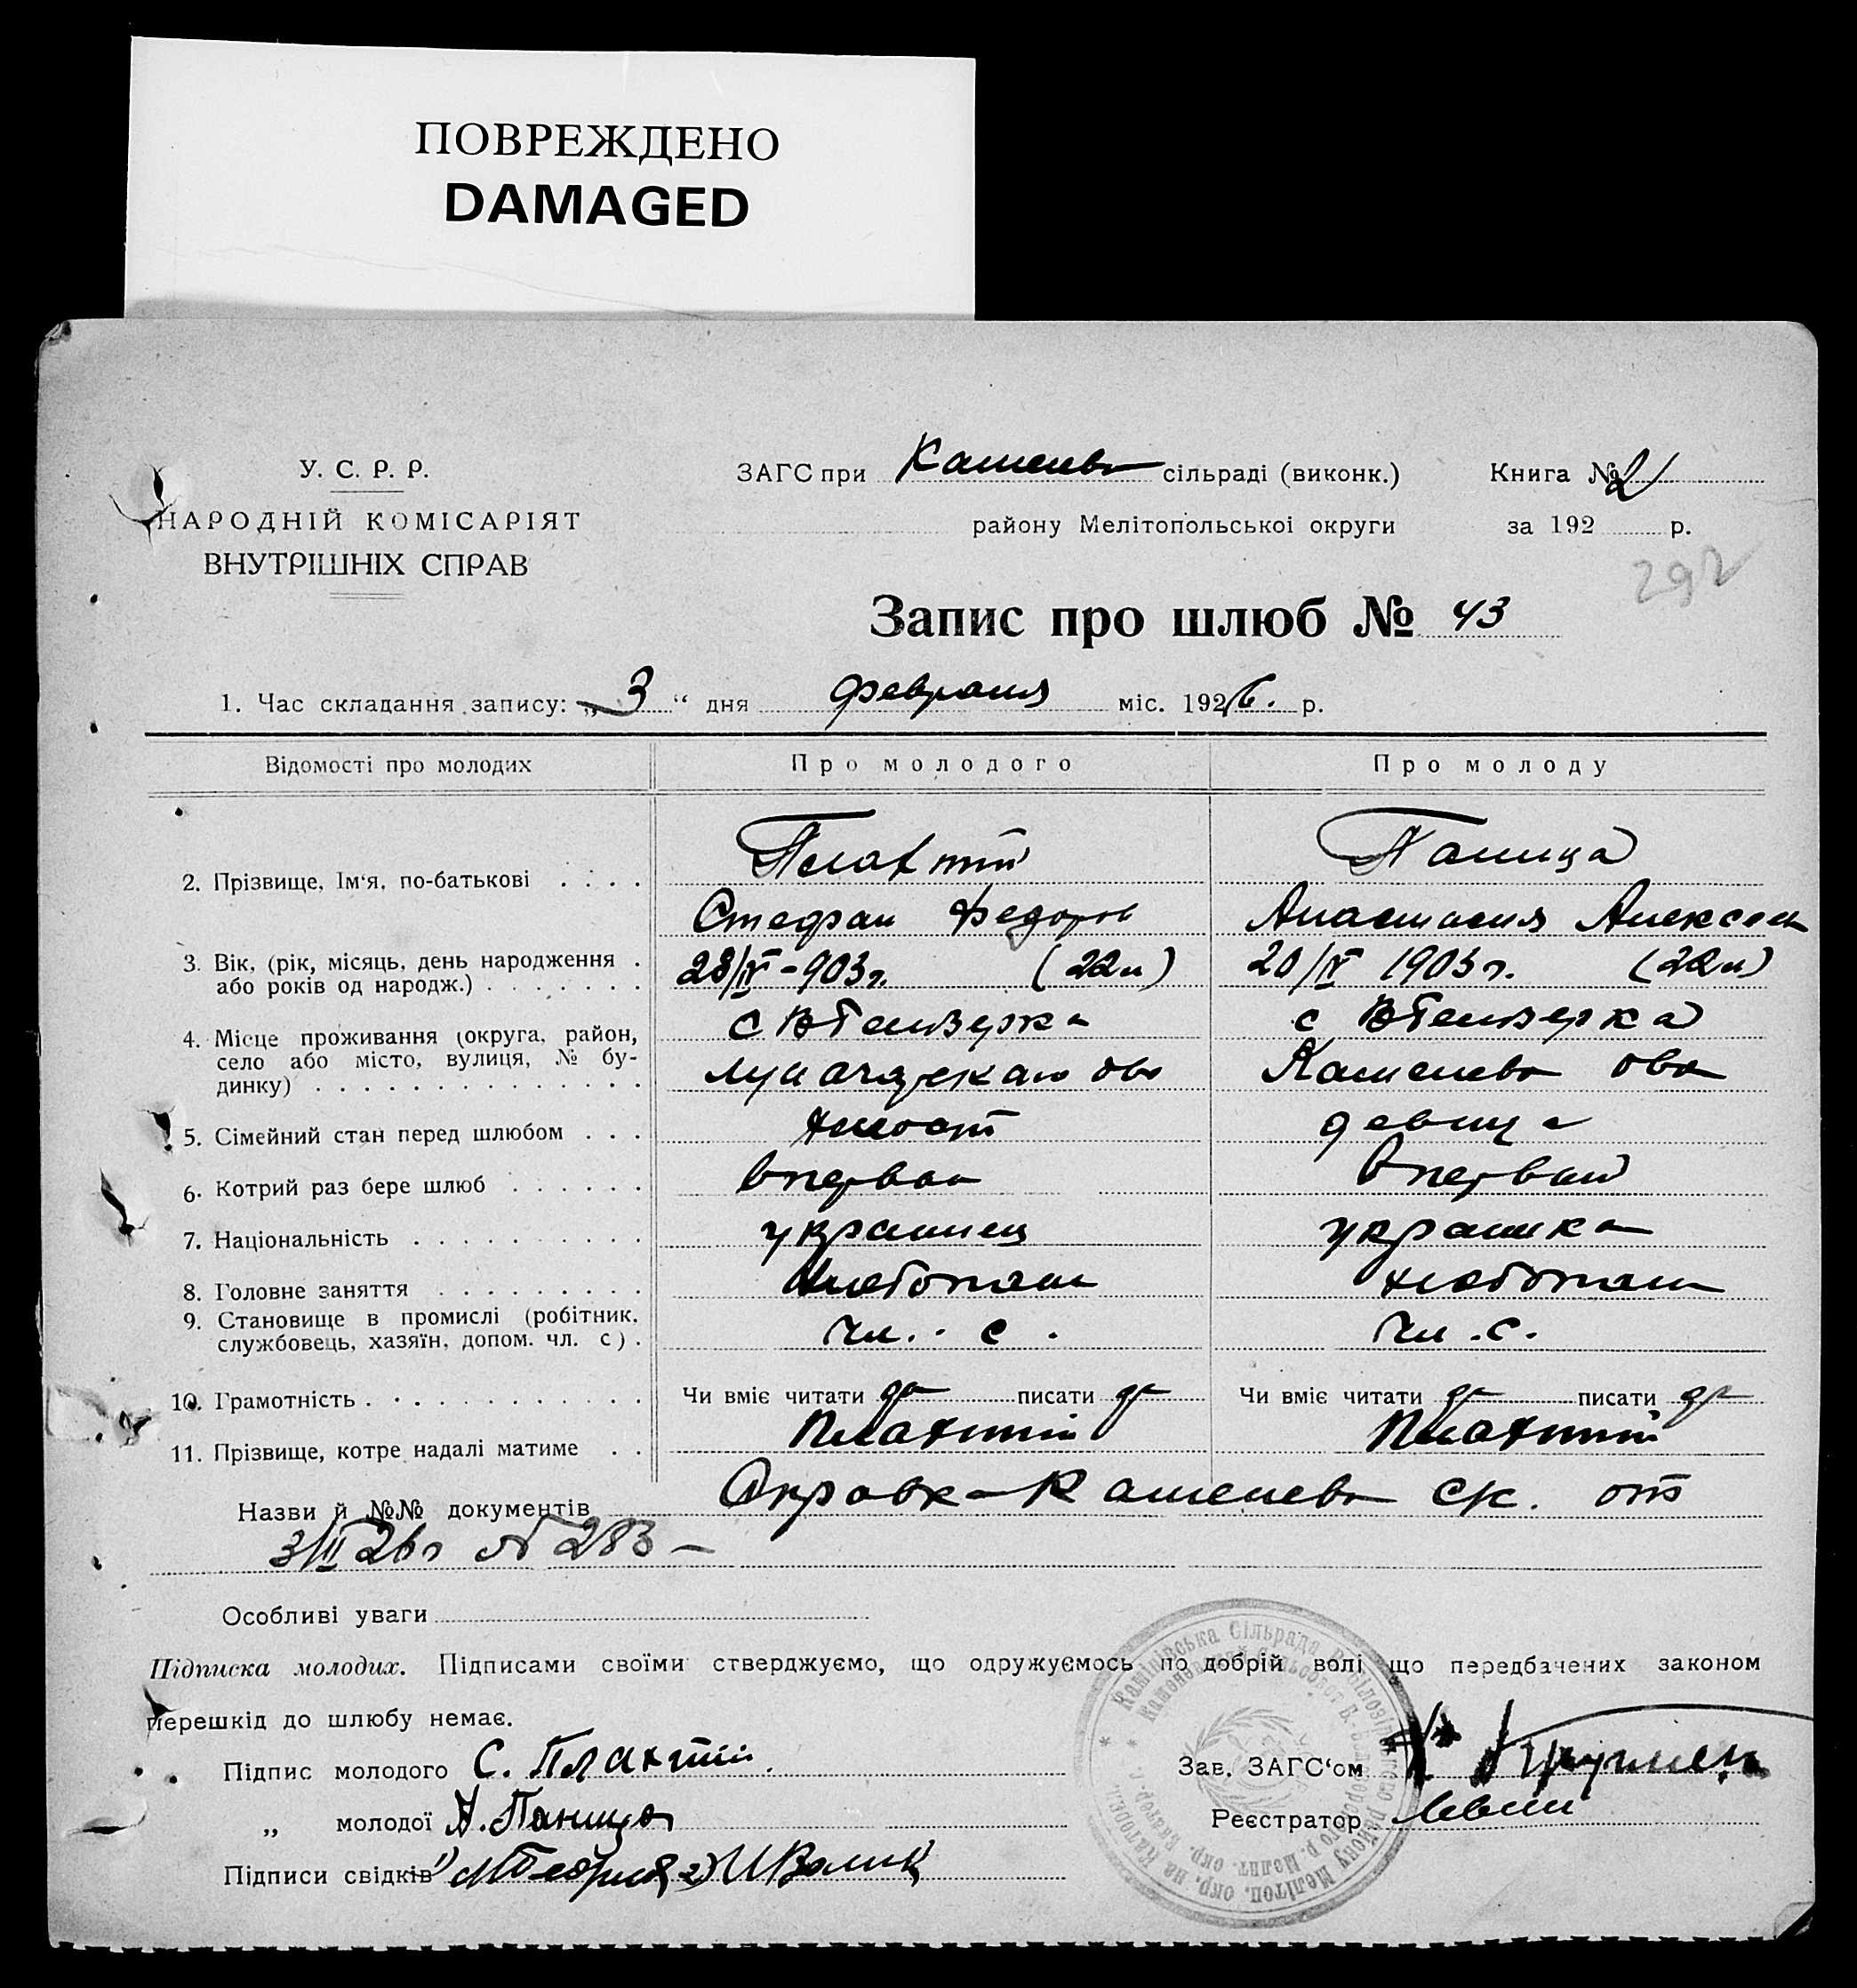 ПОВРЕЖДЕНО
DAMAGED
У. С. Р. Р.
НАРОДНІЙ КОМІСАРІЯТ
ВНУТРІШНІХ СПРАВ
ЗАГС при сільраді (виконк.) Книга № 2
району Мелітопольської округи за 192 р.
292
Запис про шлюб № 43
1. Час складання запису: „3“ дня февраля міс. 1926. р.
Відомості про молодих Про молодого Про молоду
2. Прізвище, Ім'я, по-батькові Плахтій Паница
Стефан Федоров Анастасия Алексеев
3. Вік, (рік, місяць, день народження 28/IV-903г. (22л) 20/IV 1903г. (22л)
або років од народж.)
4. Місце проживання (округа, район,
село або місто, вулиця, № бу-
динку)
5. Сімейний стан перед шлюбом холост девица
6. Котрий раз бере шлюб
7. Національність украинец украинка
8. Головне заняття хлебопаш хлебопаш
9. Становище в промислі (робітник, чл. с. чл. с.
службовець, хазяїн, допом. чл. с)
10. Грамотність Чи вміє читати да писати да Чи вміє читати да писати да
11. Прізвище, котре надалі матиме Плахтій Плахтій
Назви й №№ документів от
3/II 26г № 283 –
Особливі уваги
Підписка молодих. Підписами своїми стверджуємо, що одружуємось по добрій волі що передбачених законом
перешкід до шлюбу немає.
Підпис молодого С. Плахтій Зав. ЗАГС'ом
„ молодої А. Паница Реєстратор
Підписи свідків 1) 2)